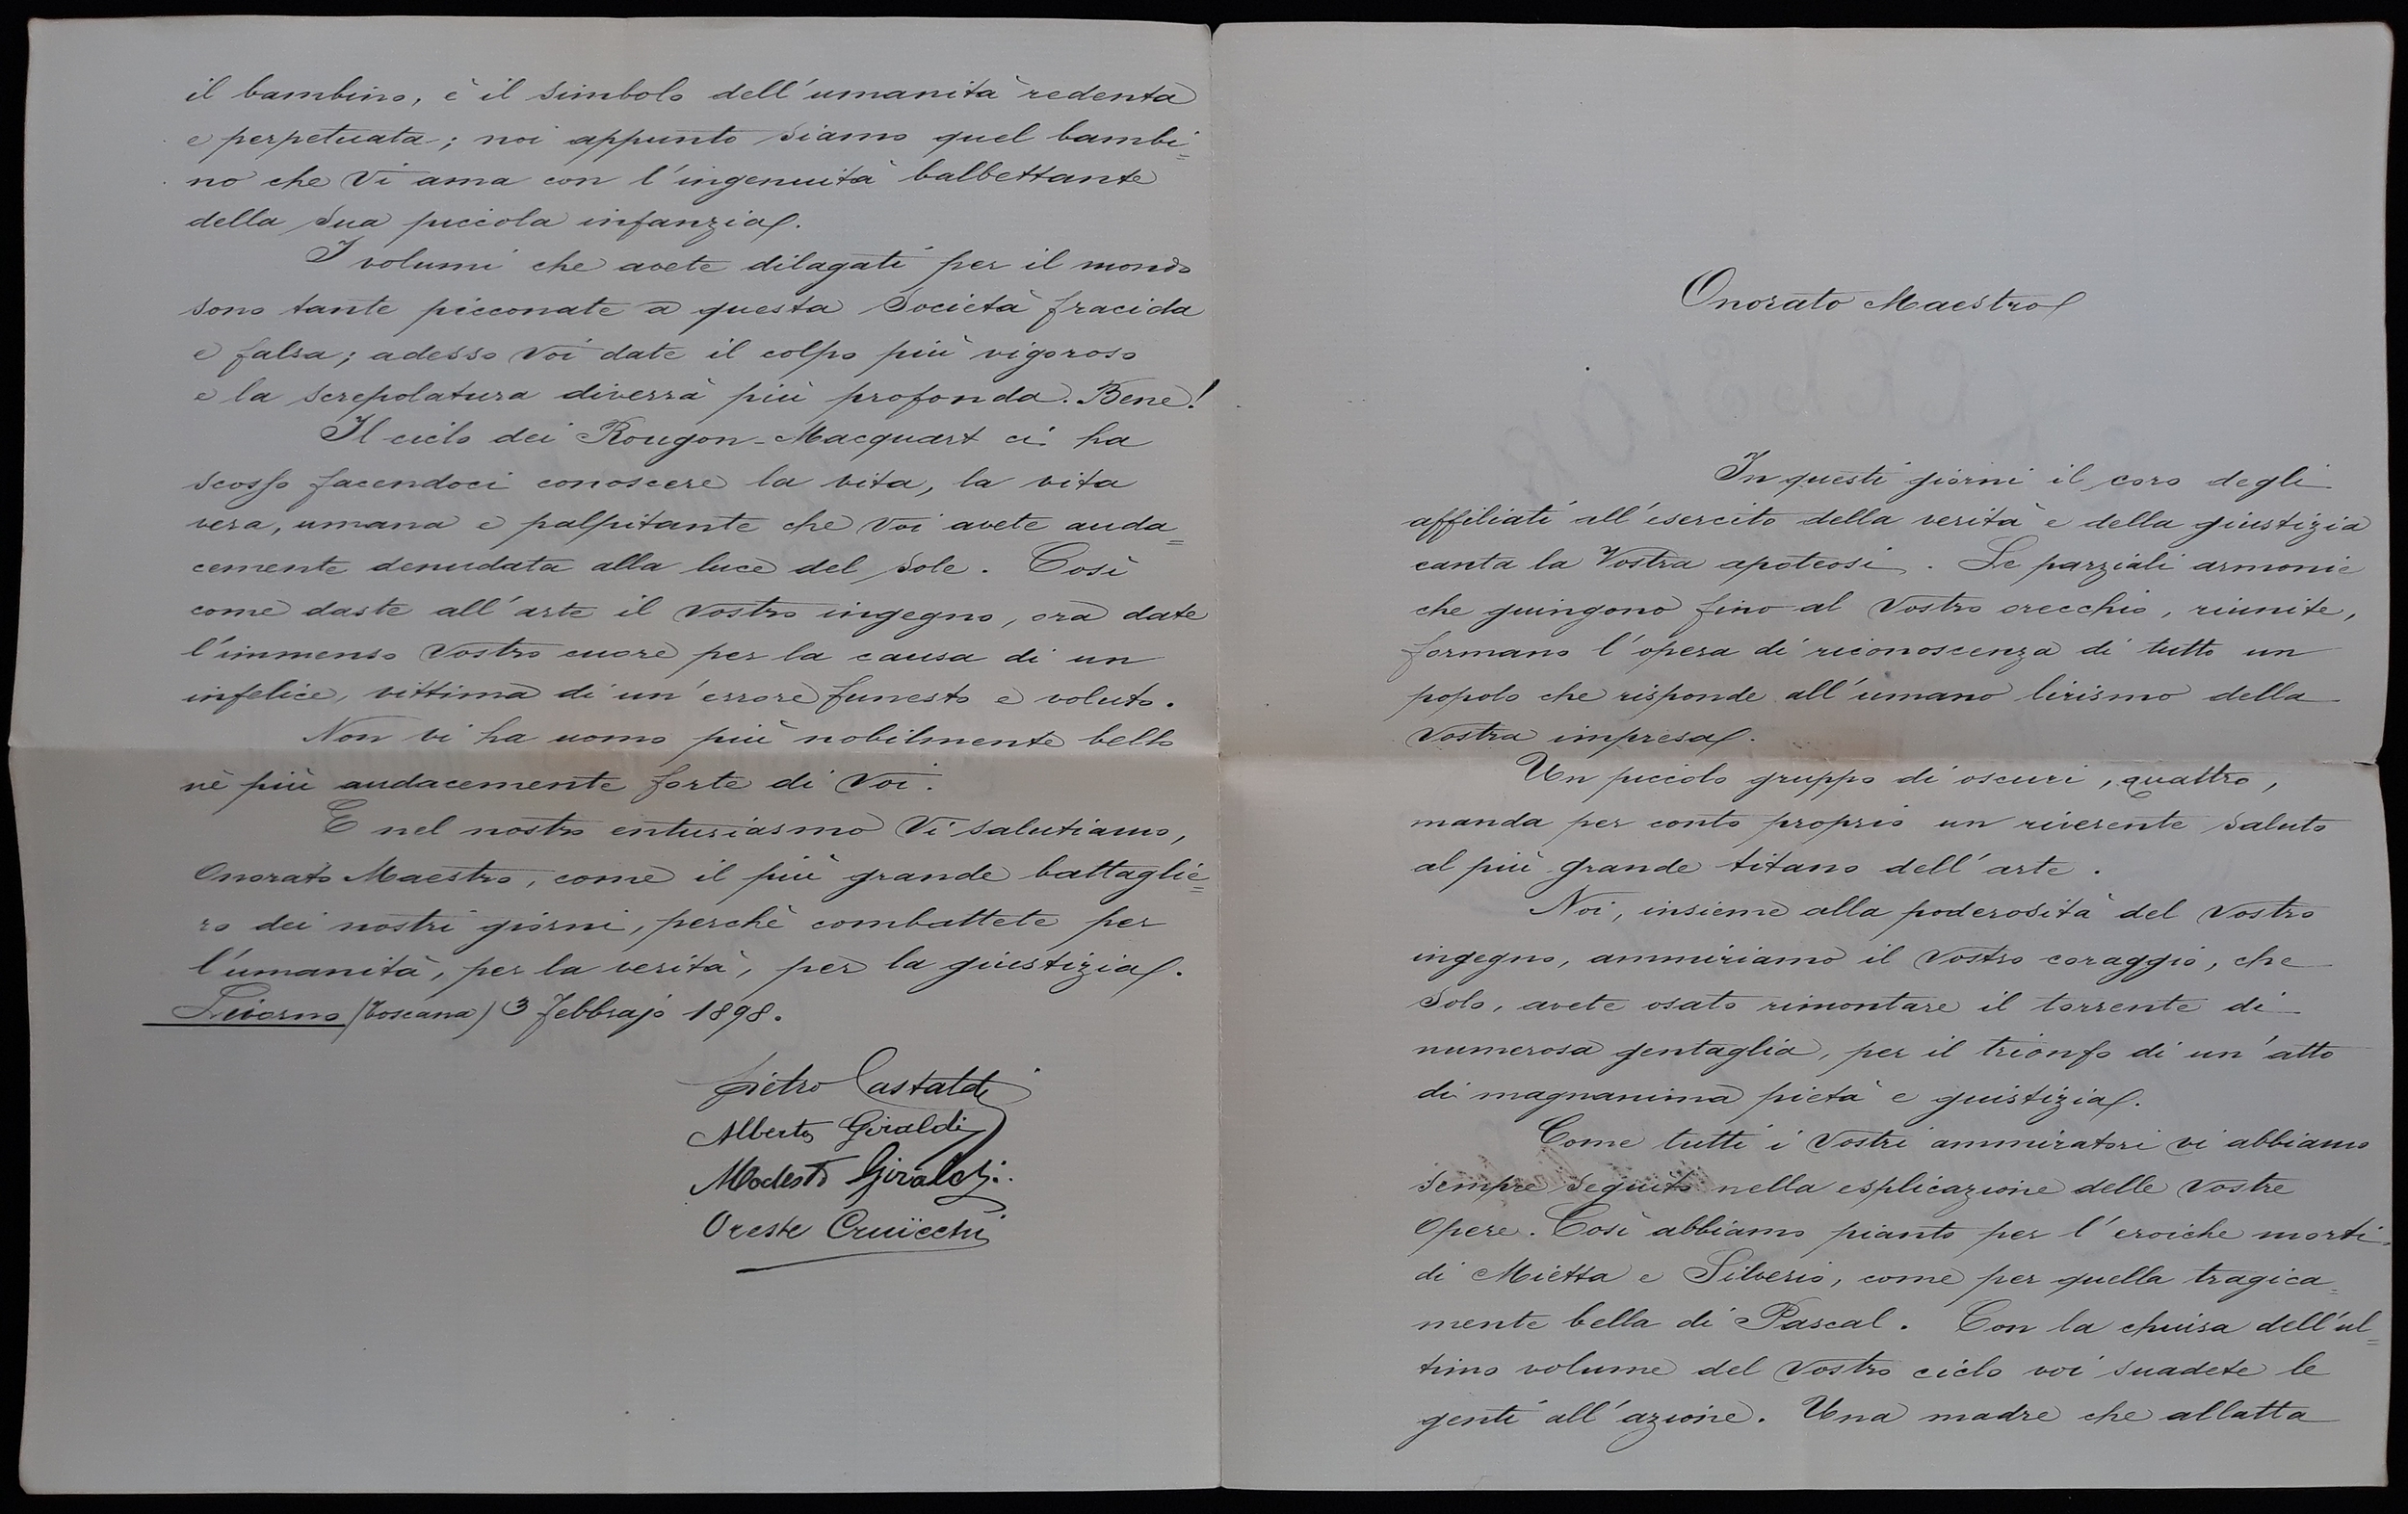 Onorato Maestro
In questi giorni il coro degli
affiliati all'esercito della verità e della giustizia
canta la Vostra apoteosi. Le parziali armonie
che giungono fino al Vostro orecchio, riunite,
formano l'opera di riconoscenza di tutto un
popolo che risponde all'umano lirismo della
Vostra impresa.
Un piccolo gruppo di oscuri, quattro,
manda per conto proprio un riverente saluto
al più grande titano dell'arte.
Noi, insieme alla poderosità del Vostro
ingegno, ammiriamo il Vostro coraggio, che
solo, avete osato rimontare il torrente di
numerosa gentaglia, per il trionfo di un'atto
di magnanima pietà e giustizia.
Come tutti i Vostri ammiratori vi abbiamo
sempre seguito nella esplicazione delle Vostre
Opere. Così abbiamo pianto per l'eroiche morti
di Mietta e Silverio, come per quella tragica=
mente bella di Pascal. Con la chiusa dell'ul=
timo volume del Vostro ciclo voi suadete le
genti all'azione. Una madre che allatta
il bambino, è il simbolo dell'umanità redenta
e perpetuata; noi appunto siamo quel bambi=
no che Vi ama con l'ingenuità balbettante
della sua piccola infanzia.
I volumi che avete dilagati per il mondo
sono tante picconate a questa Società fracida
e falsa; adesso Voi date il colpo più vigoroso
e la screpolatura diverrà più profonda. Bene!
Il ciclo dei Rougon-Macquart ci ha
scosso facendoci conoscere la vita, la vita
vera, umana e palpitante che Voi avete auda=
cemente denudata alla luce del Sole. Così
come daste all'arte il Vostro ingegno, ora date
l'immenso Vostro cuore per la causa di un
infelice, vittima di un'errore funesto e voluto.
Non vi ha uomo più nobilmente bello
nè più audacemente forte di Voi.
E nel nostro entusiasmo Vi salutiamo,
Onorato Maestro, come il più grande battaglie=
ro dei nostri giorni, perchè combattete per
l'umanità, per la verità, per la giustizia.
Livorno (Toscana) 3 Febbrajo 1898.
Pietro Castaldi
Alberto Giraldi
Modesto Giraldi.
Oreste